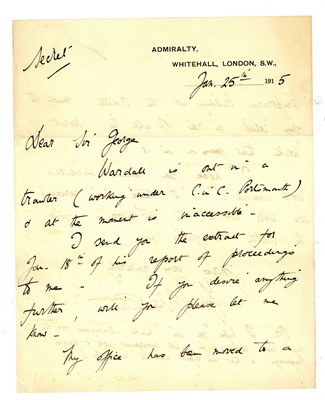 Secret
ADMIRALTY,
WHITEHALL, LONDON, S.W.,
Jan. 25th 1915
Dear Sir George
Wardall is out in a
trawler (working under C. in C. Portsmouth)
& at the moment is inaccessible -
I send you the extract for
Jan. 18th of his report of proceedings
to me - If you desire anything
further, will you please let me
know -
My office has been moved to a